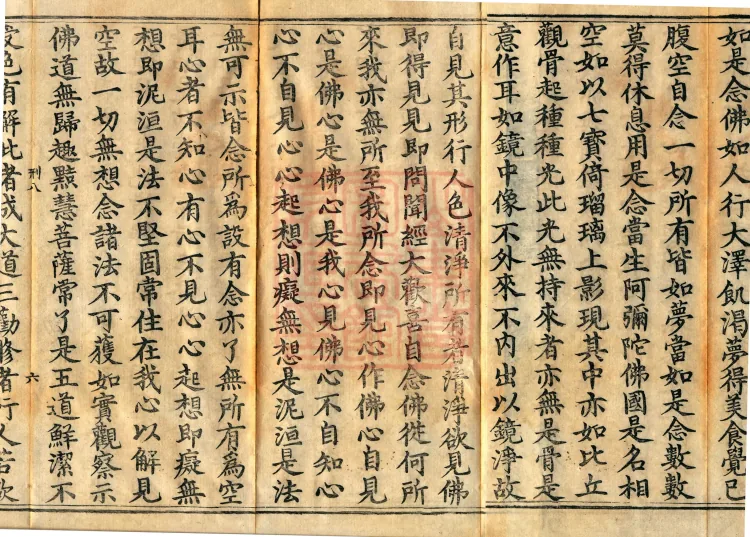 如是念佛如人行大澤飢渴夢得美食覺已
腹空自念一切所有皆如夢當如是念數數
莫得休息用是念當生阿彌陀佛國是名相
空如以七寶倚瑠璃上影現其中亦如比丘
觀骨起種種光此光無持來者亦無是骨是
意作耳如鏡中像不外來不內出以鏡淨故
自見其形行人色清淨所有者清淨欲見佛
即得見見即問聞經大歡喜自念佛從何所
來我亦無所至我所念即見心作佛心自見
心是佛心是佛心是我心見佛心不自知心
心不自見心心起想則癡無想是泥洹是法
無可示皆念所為設有念亦了無所有為空
耳心者不知心有心不見心心起想即癡無
想即泥洹是法不堅固常住在我心以解見
空故一切無想念諸法不可獲如實觀察示
佛道無歸趣黠慧菩薩常了是五道鮮潔不
刑八 六
受色有解此者成大道三勸修者行人若欲